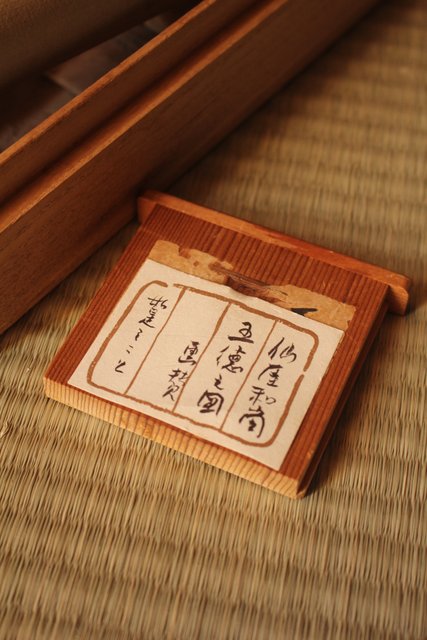 仙厓和尚
五徳之図
画賛
こと